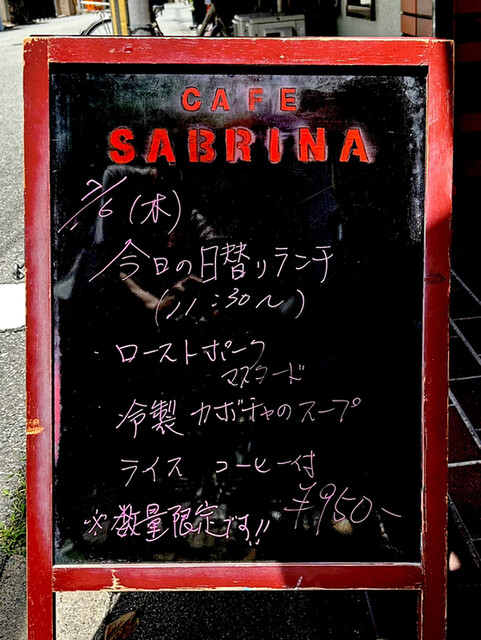 CAFE
SABRINA
7/6 (木)
今日の日替りランチ
(11:30〜)
・ローストポーク
マスタード
冷製 カボチャのスープ
ライス コーヒー付
¥950-
※数量限定です!!